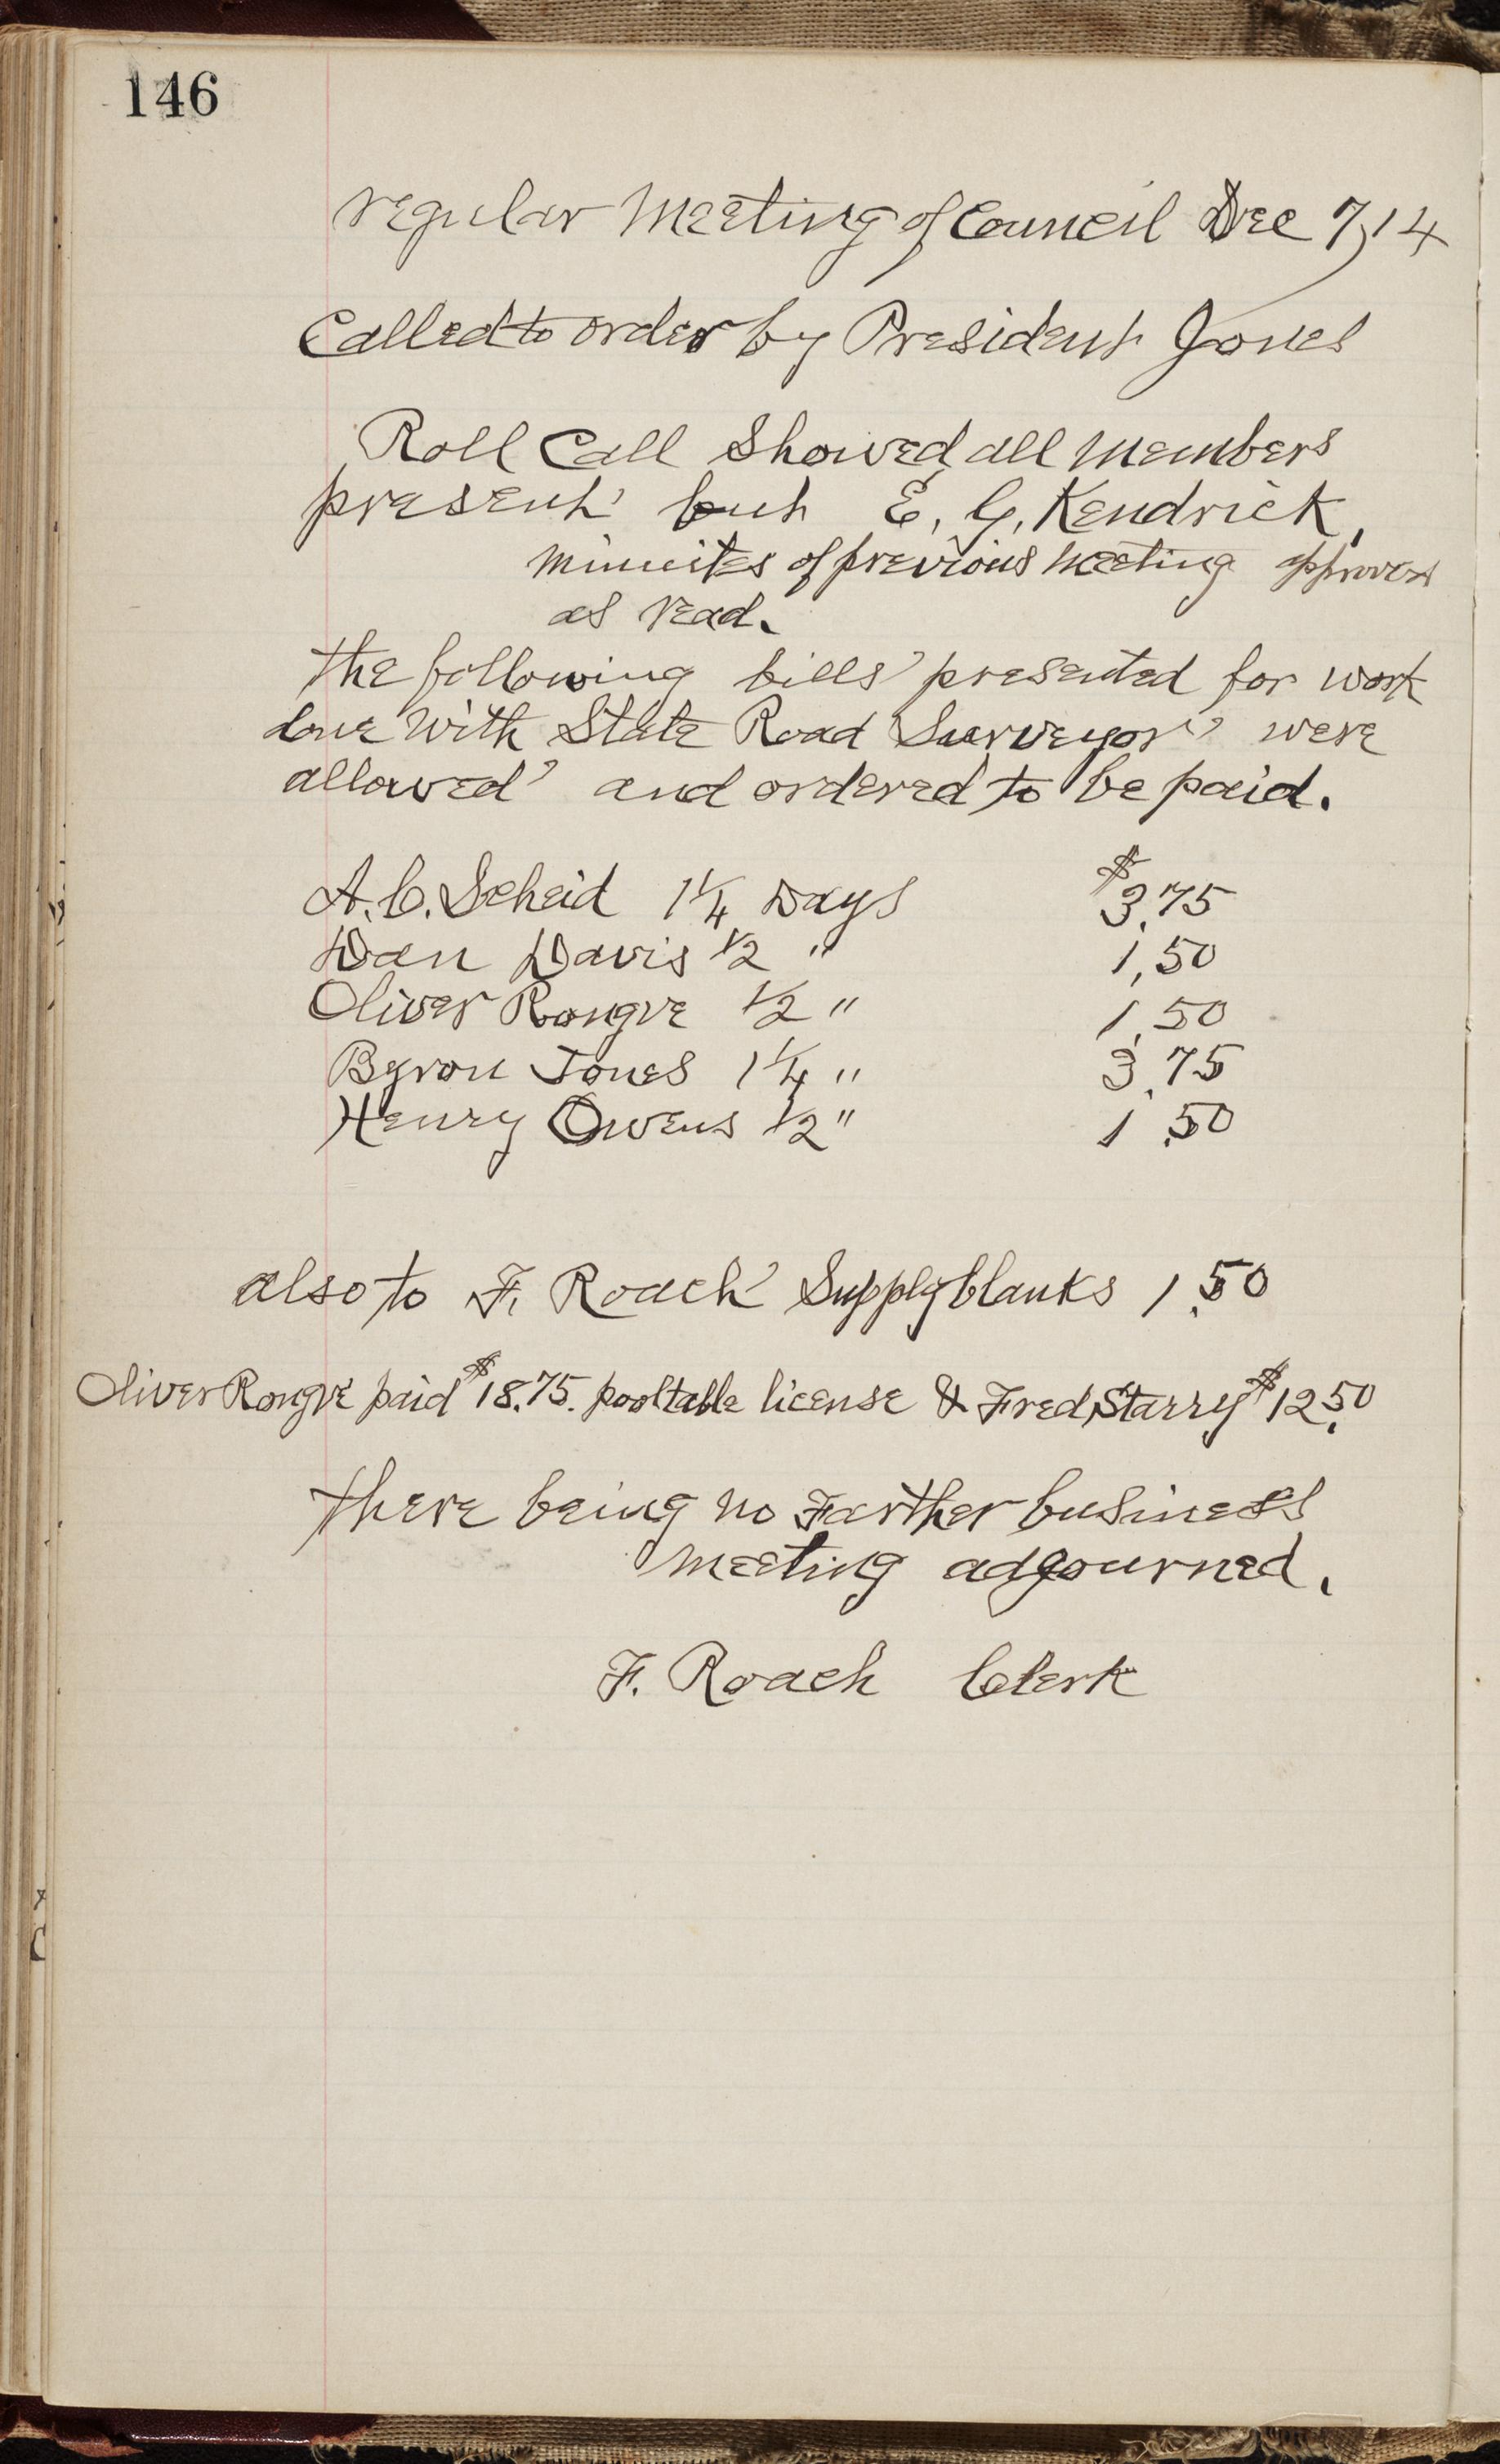 146
regular Meeting of Council Dec 7, 14
Called to order by President Jones
Roll Call Showed all Members
present but E. G. Kendrick,
minuites of previous meeting approved
as read.
the following bills presented for work
done with State Road Suerveyors were
allowed and ordered to be paid.
A. C. Scheid 1 1/4 Days $3.75
Dan Davis 1/2 " 1,50
Oliver Rongve 1/2 " 1,50
Byron Jones 1 1/4 " 3,75
Henry Owens 1/2 " 1.50
also to F. Roach Supply blanks 1.50
Oliver Rongve paid $18.75. pooltable license & Fred Starry $12.50
there being no Farther business
meeting adjourned.
F. Roach Clerk